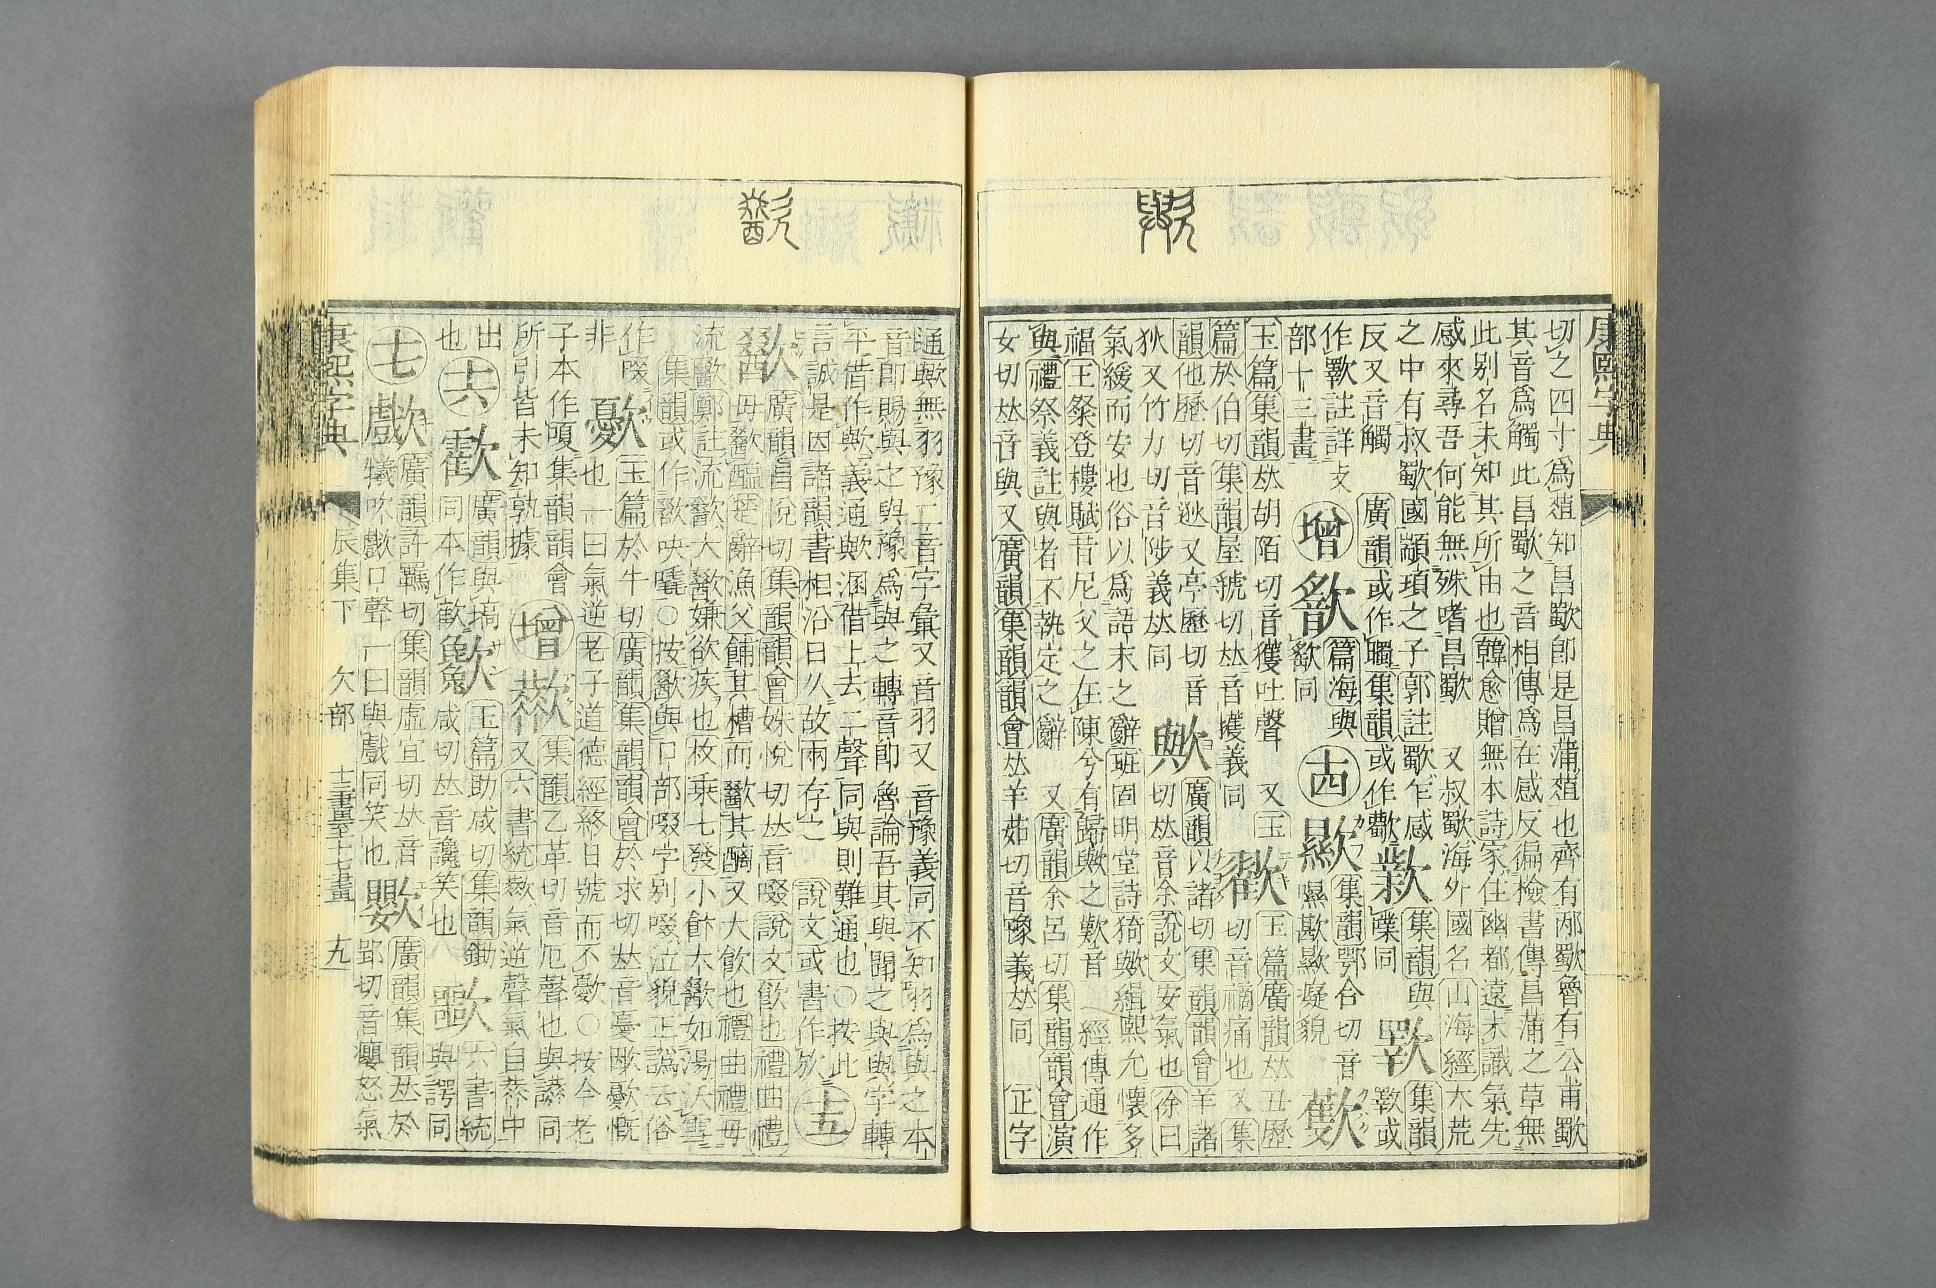 康熙字典
切之四寸為菹知昌歜即是昌蒲菹也齊有邴歜魯有公甫歜
其音為觸此昌歜之音相傳為在感反徧檢書傳昌蒲之草無
此别名未知其所由也韓愈贈無本詩家住幽都遠未識氣先
感來尋吾何能無殊嗜昌歜 又叔歜海外國名山海經大荒
之中有叔歜國顓頊之子郭註歜乍感 集韻與 歝 集韻
反又音觸 廣韻或作 集韻或作 噗同 歝或
作歝註詳攴 增 篇海與 十四 集韻鄂合切音
部十三畫 同 癡貌
玉篇集韻𠀤胡陌切音獲吐聲 又玉 玉篇廣韻𠀤丑歷
篇於伯切集韻屋虢切𠀤音擭義同 切音 痛也又集
韻他歷切音逖又亭歷切音 歟 廣韻以諸切集韻韻會羊諸
狄又竹力切音陟義𠀤同 切𠀤音余說文安氣也徐曰
氣緩而安也俗以為語末之辭班固明堂詩猗歟緝熙允懷多
福王粲登樓賦昔尼父之在陳兮有歸歟之歎音 經傳通作
與禮祭義註與者不執定之辭 又廣韻余呂切集韻韻會演
女切𠀤音與又廣韻集韻韻會𠀤羊茹切音豫義𠀤同 正字
通歟無羽豫二音字彙又音羽又音豫義同不知羽為與之本
音即賜與之與豫為與之轉音即魯論吾其與聞之與與字轉
平借作歟與義通歟溷借上去二聲同與則難通也○按此
言誠是因諸韻書相沿日久故兩存之 說文或書作欤 十五
歠 廣韻昌悅切集韻韻會姝悅切𠀤音啜說文飮也禮曲禮
毋歠醢楚辭漁父餔其糟而歠其醨又大飮也禮曲禮毋
流歠鄭註流歠大歠嫌欲疾也枚乗七發小飰大歠如湯沃雪
集韻或作 吷嚽○按歠與口部啜字别啜泣貌正譌云俗
作啜 玉篇於牛切廣韻集韻韻會於求切𠀤音憂 㱊慨
非 㱊 也一曰氣逆老子道德經終日號而不㱊○按今老
子本作嗄集韻韻會 集韻乙革切音厄聲也與 同
所引皆未知孰據 增 又六書統 氣逆聲氣自 中
出 廣韻與 玉篇助咸切集韻鋤 六書統
也 十六 同本作歊 咸切𠀤音讒笑也 與諤同
十七 廣韻許羈切集韻虛宜切𠀤音 廣韻集韻𠀤於
犧吹 口聲一曰與戲同笑也 郢切音癭怒氣
康熙字典 辰集下 欠部 十三畫至十七畫 九